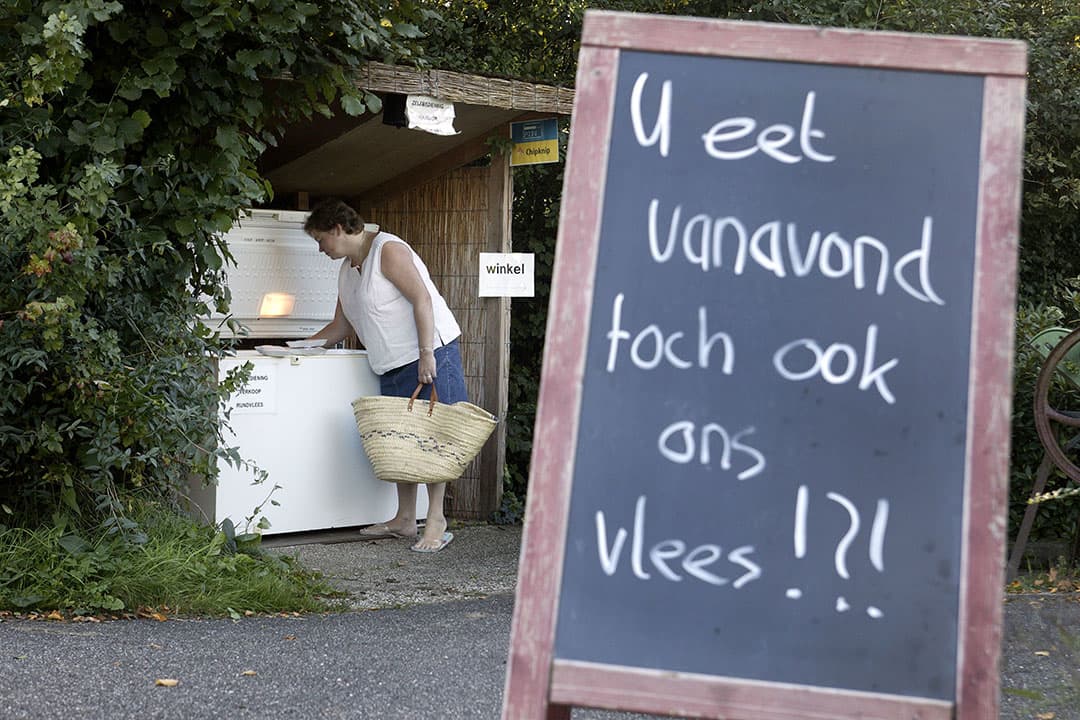 U eet
vanavond
toch ook
ons
vlees !?!
ZELFBEDIENING
Chipknip
winkel
VERKOOP
RUNDVLEES